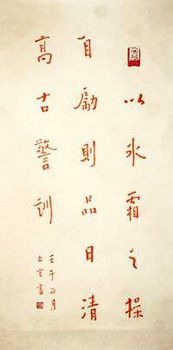 以冰霜之操
自勵則品日清
高古警訓
壬午正月